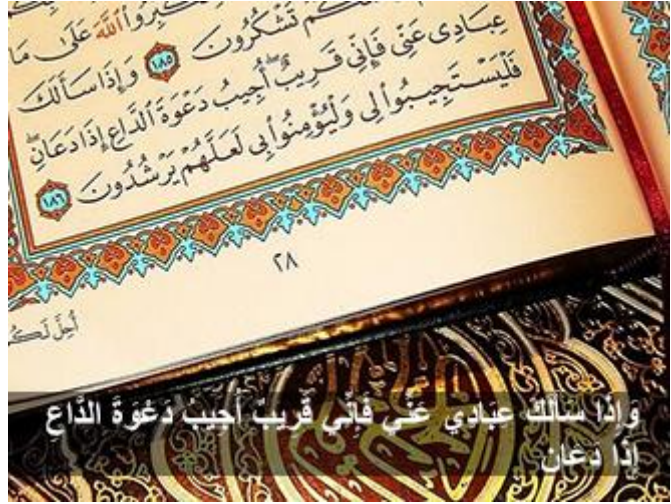 تُكَبِّرُوا۟ ٱللَّهَ عَلَىٰ مَا
تَشْكُرُونَ ١٨٥ وَإِذَا سَأَلَكَ
عِبَادِى عَنِّى فَإِنِّى قَرِيبٌ أُجِيبُ دَعْوَةَ ٱلدَّاعِ إِذَا دَعَانِ
فَلْيَسْتَجِيبُوا۟ لِى وَلْيُؤْمِنُوا۟ بِى لَعَلَّهُمْ يَرْشُدُونَ ١٨٦
٢٨
أُحِلَّ لَكُمْ
وَإِذَا سَأَلَكَ عِبَادِي عَنِّي فَإِنِّي قَرِيبٌ أُجِيبُ دَعْوَةَ الدَّاعِ
إِذَا دَعَانِ